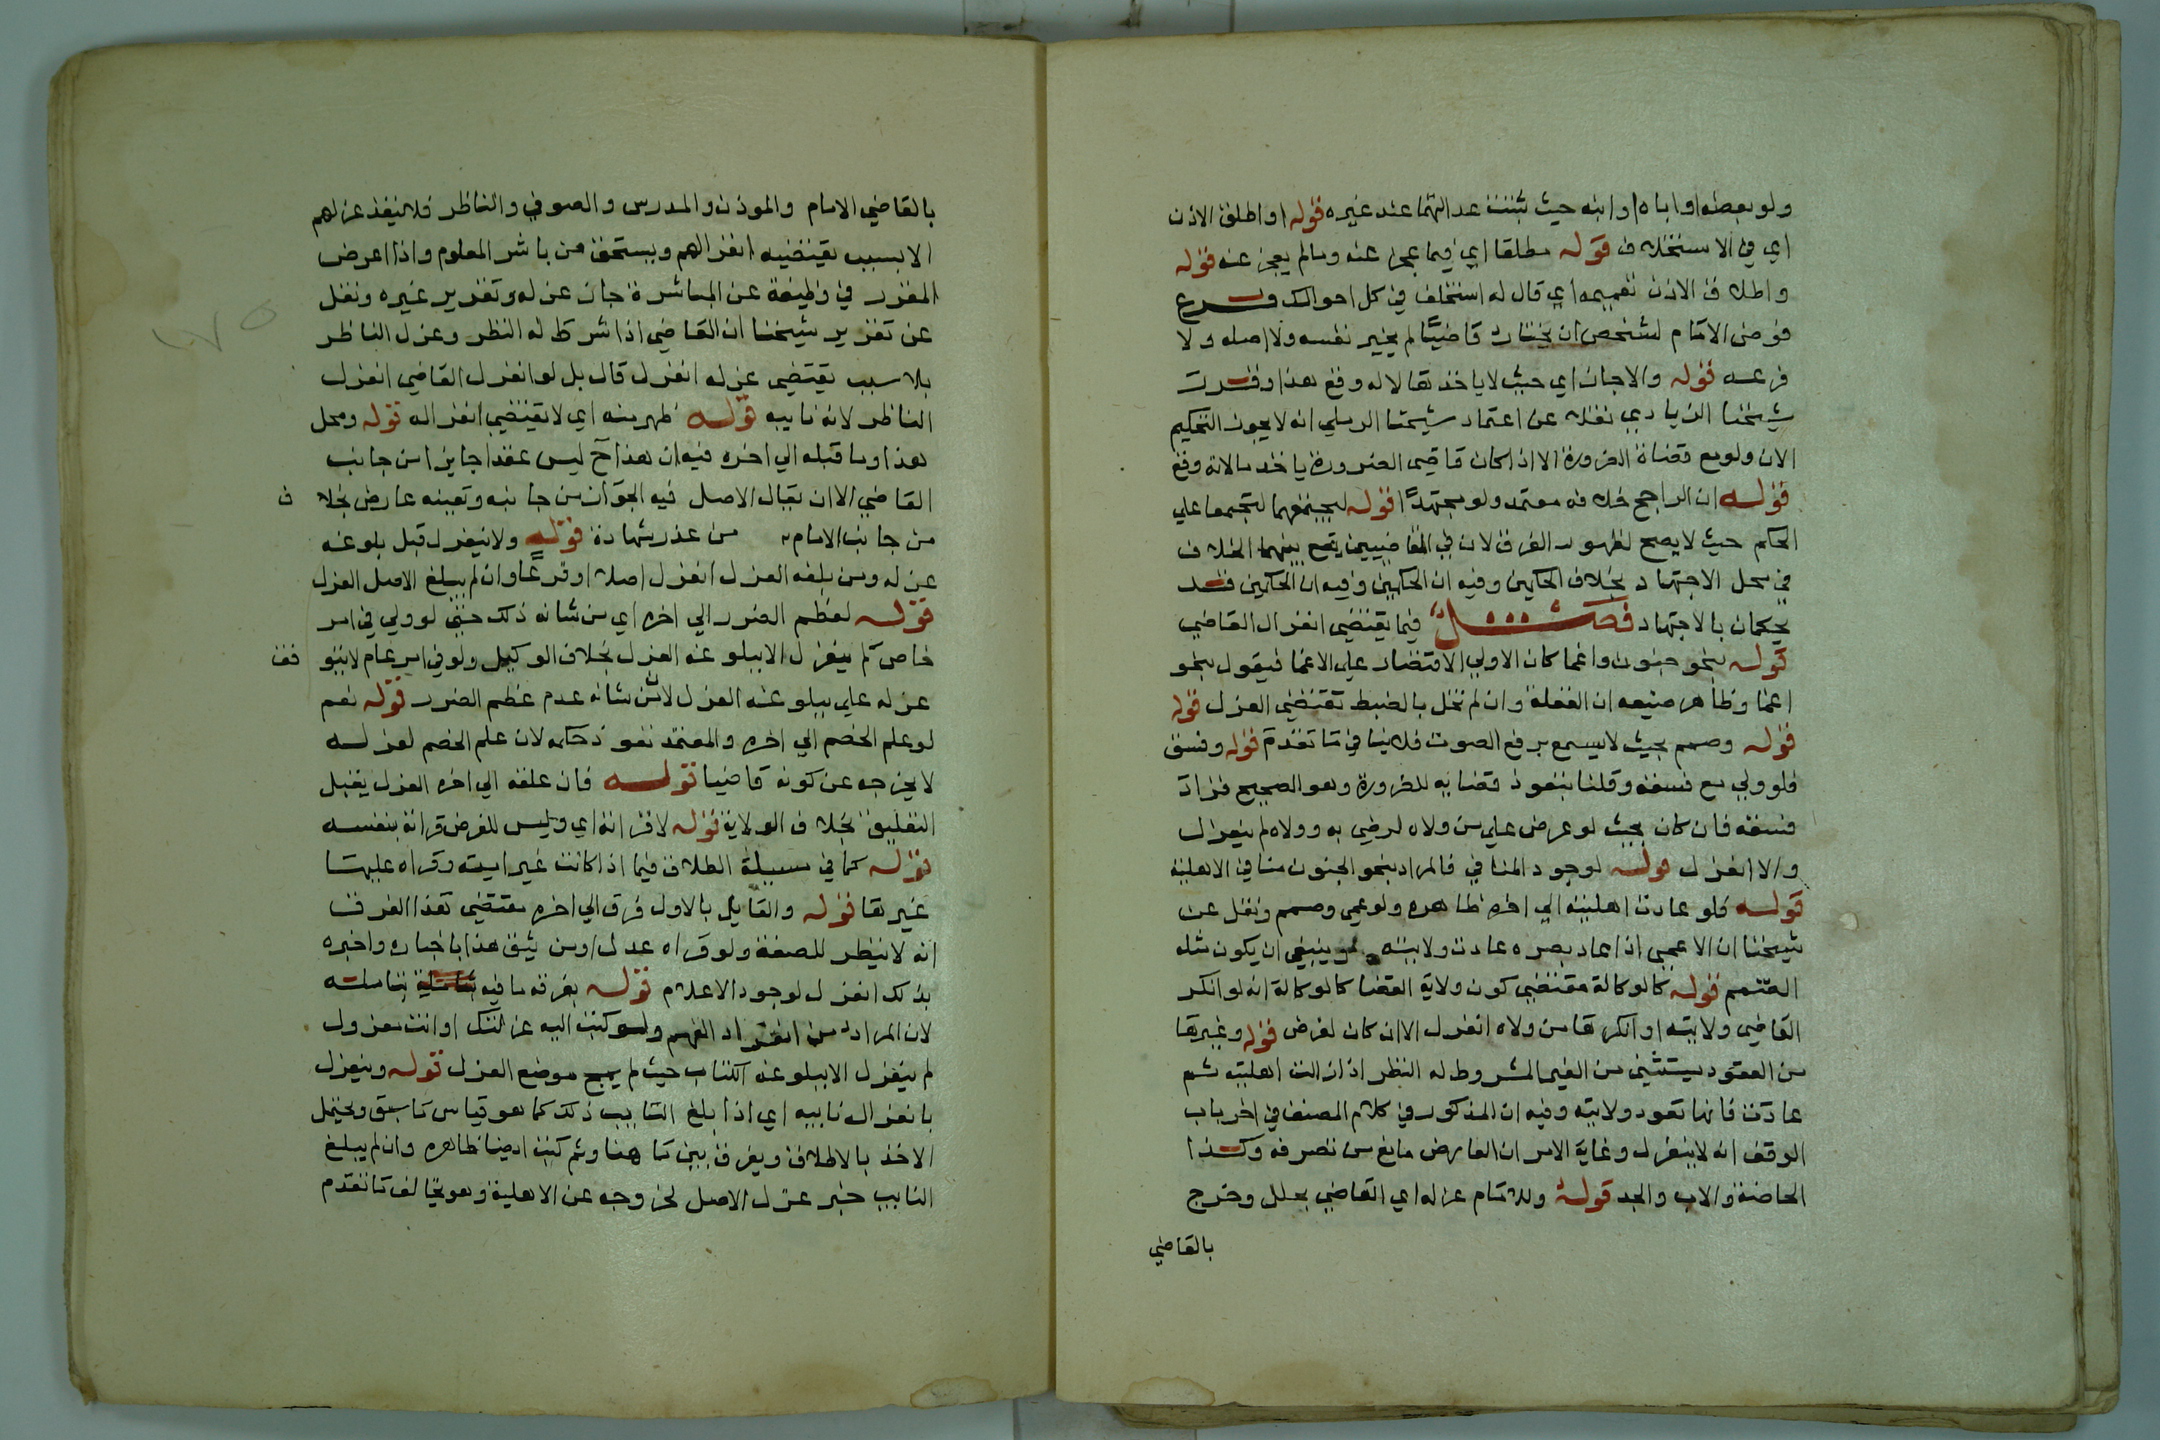 ولو بعضه او اباه او ابنه حيث ثبتت عدالتهما عند غيره قوله او اطلق الاذن
اي في الاستخلاف قوله مطلقا اي فيما عجز عنه وما لم يعجز عنه قوله
واطلاق الاذن تعميمه اي قال له استخلف في كل احوالك فرع
فوض الامام لشخص ان يختار قاضيًا لم يخير نفسه ولا اصله ولا
فرعه قوله والا جاز اي حيث لا ياخذ تها لا له وقع هذا وقررت
شيخنا الزيادي نقله عن اعتماد شيخنا الرملي انه لا يجوز التحكيم
الان ولو مع قضاة الضرورة الا اذا كان قاضي الضرورة ياخذ مالا له وقع
قوله ان الراجح خلافه معتمد ولو مجتهدًا قوله ليجتمعا علي
الحكم حيث لا يصح لظهور الفرق لان في القاضيين يقع بينهما الخلاف
في محل الاجتهاد بخلاف الحكمين وفيه ان الحكمين وفيه ان الحكمين قد
يحكمان بالاجتهاد فصل فيما يقتضي انعزال القاضي
قوله بنحو جنون واغما كان الاولي الاقتصار علي الاغما فيقول بنحو
اغما وظاهر صنيعه ان الغفلة وان لم تخل بالضبط تقتضي العزل قوله
قوله وصمم بحيث لا يسمع برفع الصوت فلا ينافي ما تقدم قوله وفسق
فلو ولي مع فسقه وقلنا بنفوذ قضايه للضرورة وهو الصحيح فزاد
فسقه فان كان بحيث لو عرض علي من ولاه لرضي به وولاه لم ينعزل
والا انعزل قوله لوجود المنافي فالمراد بنحو الجنون منافي الاهلية
قوله فلو عادت اهليته الي اخره ظاهره ولو عمي وصمم ونقل عن
شيخنا ان الاعمي اذا عاد بصره عادت ولايته وينبغي ان يكون مثله
الصمم قوله كالوكالة مقتضي كون ولاية القضا كالوكالة انه لو انكر
القاضي ولايته او انكرها من ولاه انعزل الا ان كان لغرض قوله وغيرها
من العقود يستثني من القيم المشروط له النظر اذا زالت اهليته ثم
عادت فانها تعود ولايته وفيه ان المذكور في كلام المصنف في اخر باب
الوقف انه لا ينعزل وغاية الامر ان العارض مانع من تصرفه وكذا
الحاضنة والاب والجد قوله وللامام عزله اي القاضي بخلل وخرج
بالقاضي
بالقاضي الامام والموذن والمدرس والصوفي والناظر فلا ينفذ عزلهم
الا بسبب يقتضيه انعزالهم ويستحق من باشر المعلوم واذا اعرض
المقرر في وظيفة عن المباشرة جاز عزله وتقرير غيره ونقل
عن تقرير شيخنا ان القاضي اذا شرط له النظر وعزل الناظر
بلا سبب يقتضي عزله انعزل قال بل لو انعزل القاضي انعزل
الناظر لانه نايبه قوله ظهر منه اي لا يقتضي انعزاله قوله ومحل
هذا وما قبله الي اخره فيه ان هذا ح ليس عقدا جايزا من جانب
القاضي الا ان يقال الاصل فيه الجواز من جانبه وتعينه عارض بخلاف
من جانب الامام من عذر شهادة قوله ولا ينعزل قبل بلوغه
عزله ومن بلغه العزل انعزل اصلا او فرعا وان لم يبلغ الاصل العزل
قوله لعظم الضرر الي اخره اي من شانه ذلك حتي لو ولي في امر
خاص لم ينعزل الا ببلوغه العزل بخلاف الوكيل ولو في امر عام لا يتوقف
عزله علي بلوغه العزل لان من شانه عدم عظم الضرر قوله نعم
لو علم الخصم الي اخره والمعتمد نفوذ حكمه لان علم الخصم لعزله
لا يخرجه عن كونه قاضيا قوله فان علقه الي اخره العزل يقبل
التعليق بخلاف الولاية قوله لا قرانه اي وليس للغرض قرانه بنفسه
قوله كما في مسيلة الطلاق فيما اذا كانت غير امية وقراه عليها
غيرها قوله والقايل بالاول فرق الي اخره مقتضي هذا الفرق
انه لا ينظر للصفة ولو قراه عدل او من يثق هذا باخباره واخبره
بذلك انعزل لوجود الاعلام قوله بمعرفة ما فيه بتامله
لان المراد من القراه الفهم ولو كتب اليه عزلتك او انت معزول
لم ينعزل الا ببلوغه الكتاب حيث لم يمح موضع العزل قوله وينعزل
بانعزال نايبه اي اذا بلغ النايب ذلك كما هو قياس ما سبق ويحتمل
الاخذ بالاطلاق ويفرق بين ما هنا وثم كتب ايضا ظاهره وان لم يبلغ
النايب خبر عزل الاصل لخروجه عن الاهلية وهو يخالف ما تقدم